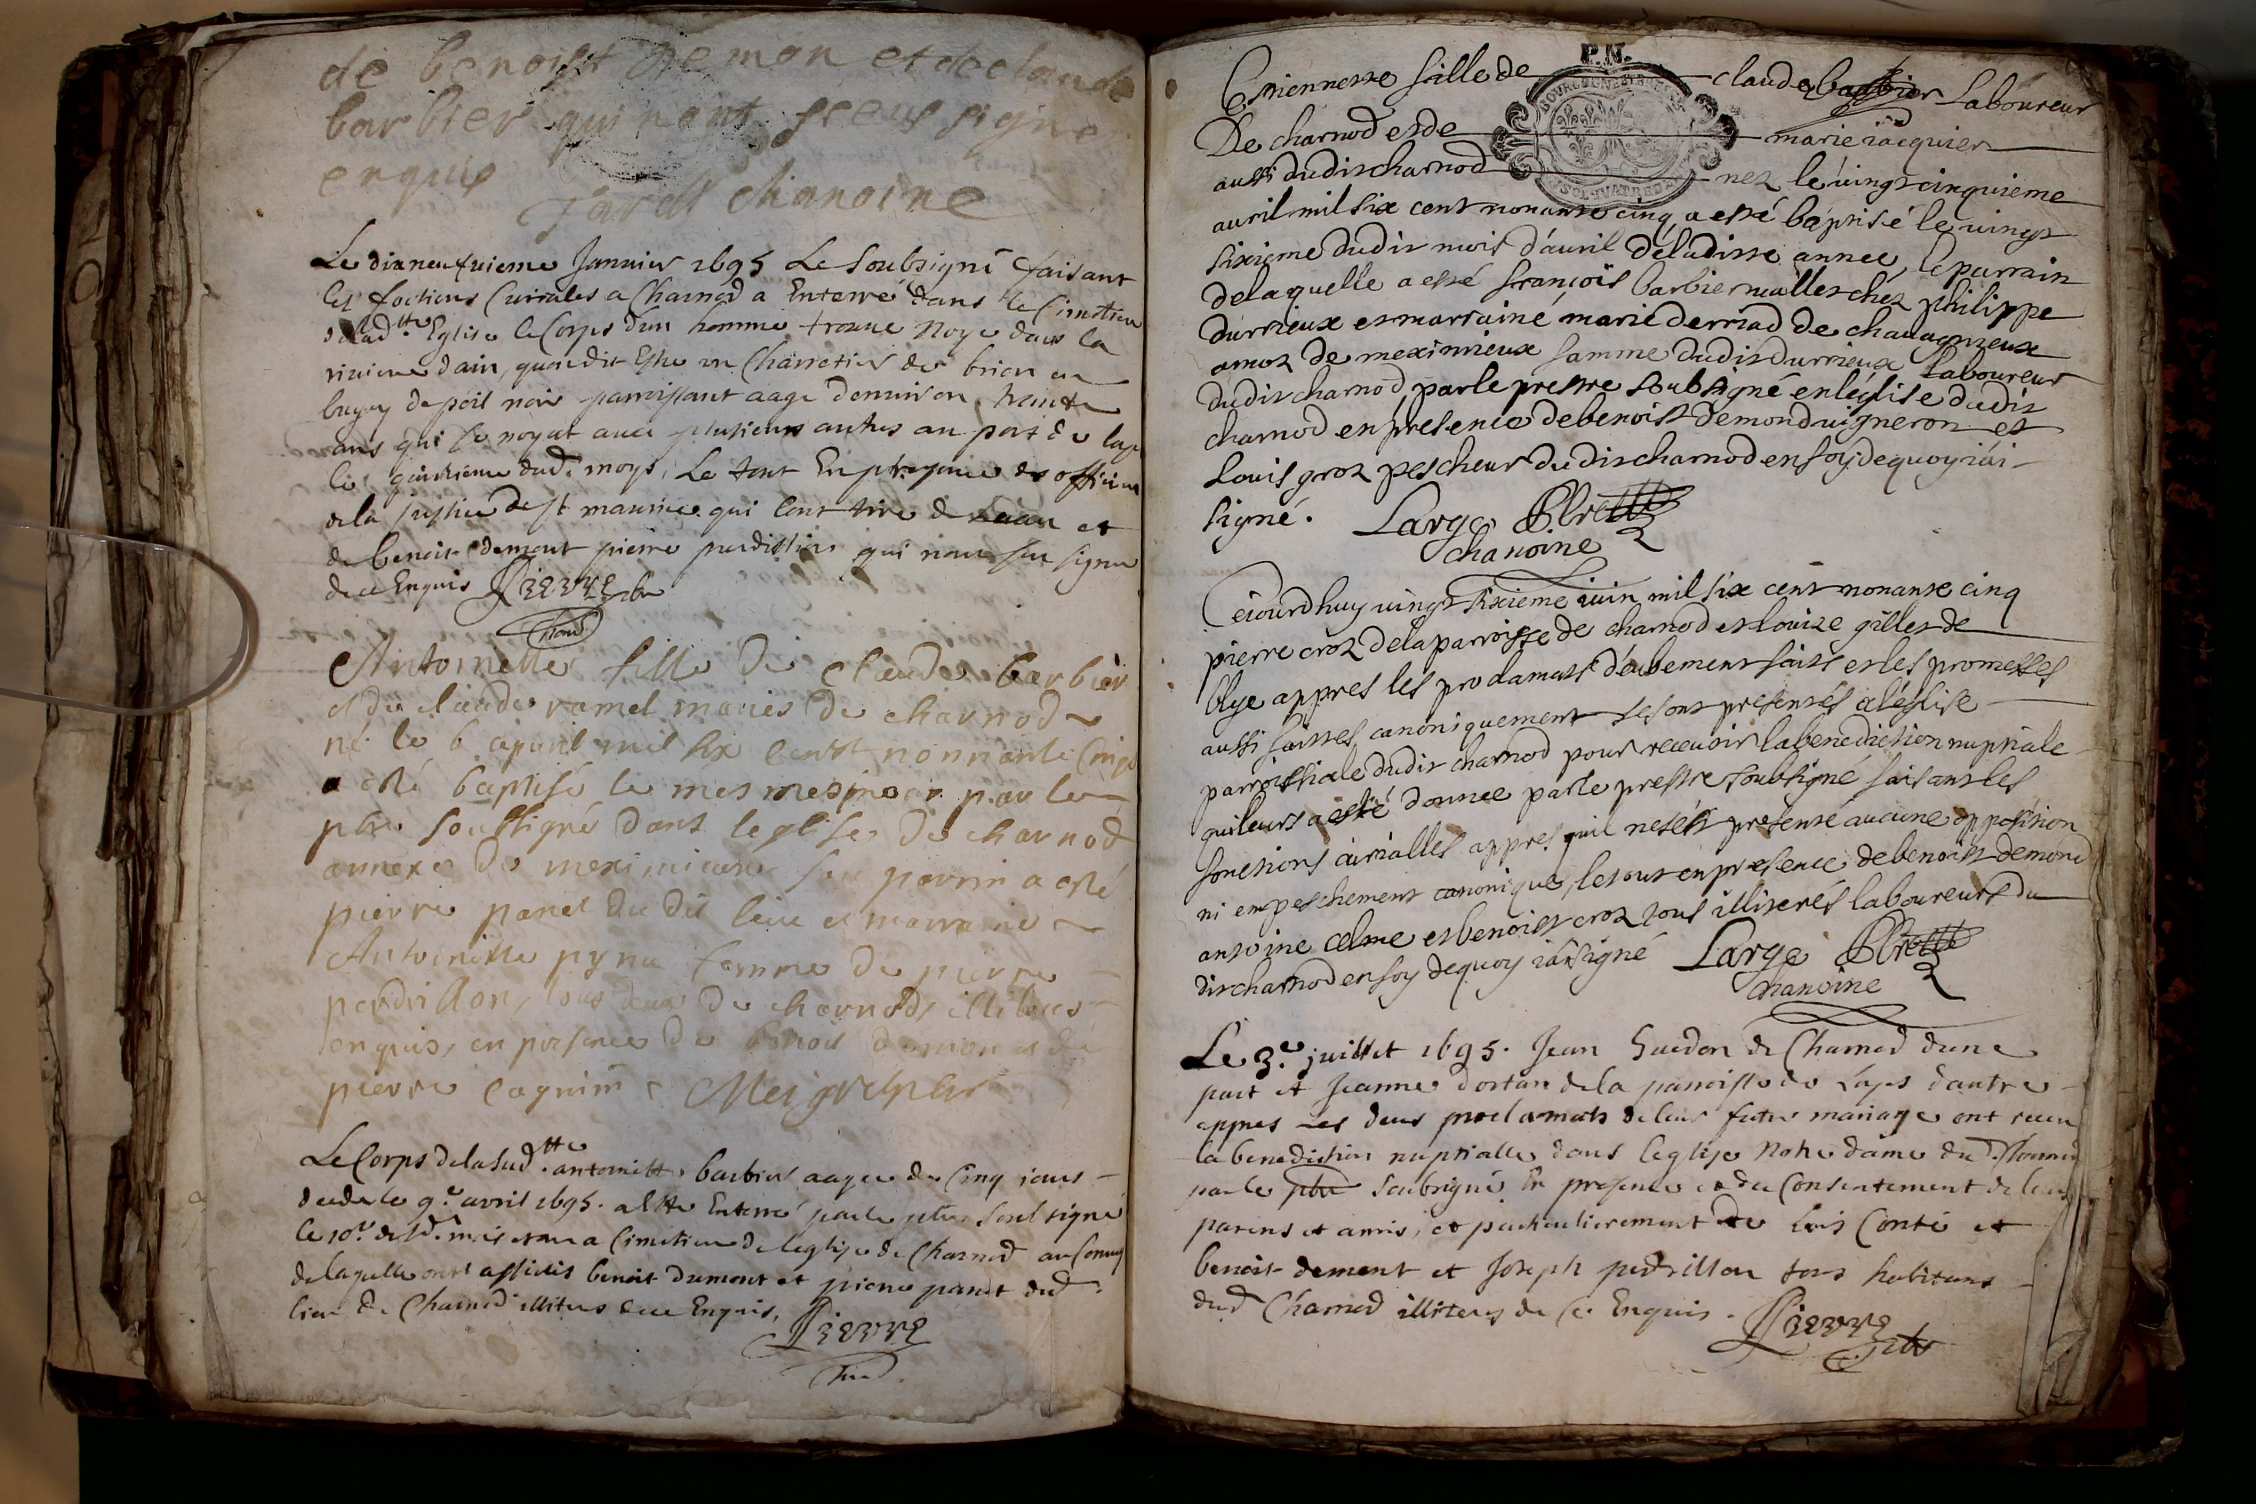 de benoist demon et de claude
barbier qui nont sceus signe
enquis
Jardt chanoine
Le dixneufvieme Janvier 1695 Le Soubsigné faisant
les foctions Curiales a Charnod a Enterré dans le Cimetiere
de lad.tte Eglise le Corps d'un homme trouue Noye dans la
riuiere dain, quon dit Estre un Charretier de brion en
bugey de poil noir parroissant aagé denuiron trente
ans qui se noyat auec plusieurs autres au port de
le quinzieme dud. moys, Le tout En presence des officiers
de la justice de st maurice qui lont tire de leau et
de benoit demont pierre perdillon qui nont sceu signer
de ce Enquis Pierre
Antoinette fille de Claude barbier
et de claude ramel mariés de charnod
né le 6 apuril mil six cents nonnante Cinq
a esté baptisé le mesme jour par le
pbre soubsigné dans leglise de charnod
annexe de meximieux son parrin a esté
pierre panet du dit lieu et marraine
Antoinette pyne femme de pierre
perdrillon, tous deux de charnod, illiteres
enquis, en presence de benoit demon et de
pierre
Le Corps de la sud.tte antoinette barbier aagée de Cinq jours
decedée le 9.e avril 1695. a este Enterré par le pbre Soubsigné
le 10.e dud. mois et an a Cimetiere de leglise de Charnod au Conuoy
de laquelle ont assistés benoit dumont et pierre panet dud.
lieu de Charnod illiteres de ce Enquis, Pierre
P.N.
Estiennette fille de claude barbier Laboureur
De charnod et de marie jacquier
aussi dudit charnod neez le vingt cinquieme
auril mil six cent nonante cinq a esté baptisé le vingt
sixieme dudit mois d'auril de laditte annee, le parrain
de laquelle a esté françois barbier vallet chez philippe
durrieux et marraine marie derriad de chauagnieux
amoz de meximieux famme dudit durrieux laboureur
dudit charnod, par le prestre soubsigné en léglise dudit
charnod en présence de benoist demond vigneron et
Louis groz pescheur dudit charnod en foÿ de quoy iái
signé. Large Pbre
chanoine
Ceiourdhuy vingt sixieme iuin mil six cent nonante cinq
pierre croz de la parroisse de charnod et louize gilles de
blye appres les proclamats deubement faits et les promesses
aussi faittes canoniquement se sont presentés a léglise
parroissiale dudit charnod pour receuoir la benediction nuptiale
qui leurs a esté donnee par le prestre soubsigné faisant les
fonctions curialles appres quil ne sést presenté aucune opposition
ni empeschement canonique, le tout en presence de benoist demond
antoine celme et benoist croz tous illiterés laboureurs du
dit charnod en foy de quoy iái signé Large Pbre
chanoine
Le 3.e juillet 1695. Jean Guedon de Charnod dune
part et Jeanne dortan de la parroisse de Lays d'autre
appres les deus proclamats de leur futur mariage ont receu
la benediction nuptialle dans leglise Notre dame du d. Charnod
par le pbre Soubsigné En presence et du Consentement de leurs
parens et amis, et particulierement de Lois Conte et
benoit demont et Joseph perdrillon tous habitans
dud. Charnod illiteres de Ce Enquis. Pierre pbr